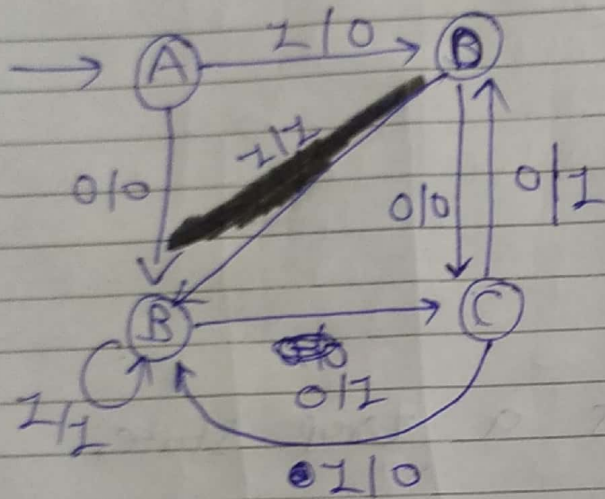 A
1/0
D
1/1
0/0
0/0
0/1
B
C
0/1
1/1
1/0